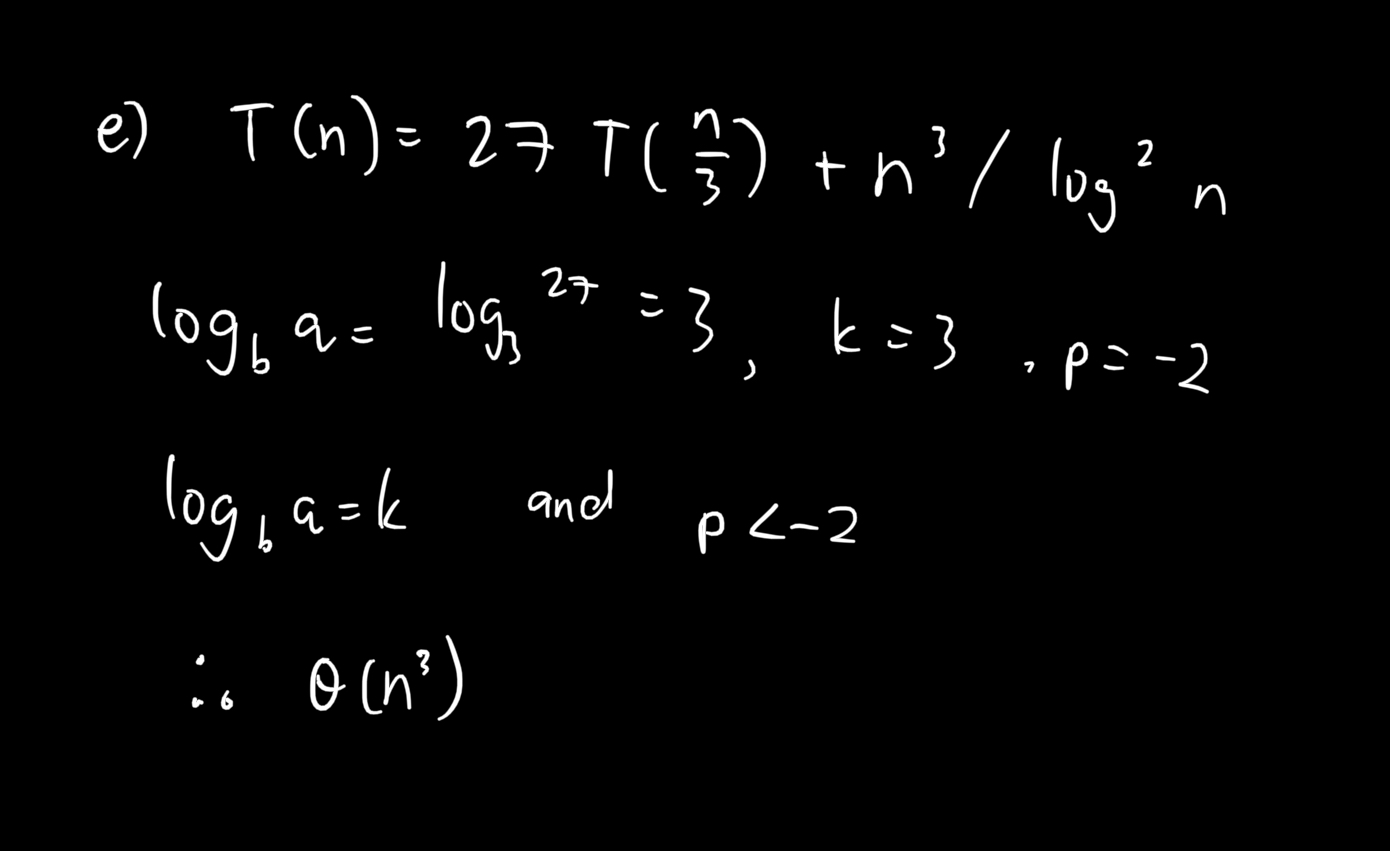 e) T(n) = 27 T(n/3) + n³ / log² n
log_b a = log_3 27 = 3, k = 3, p = -2
log_b a = k and p < -2
∴ θ(n³)